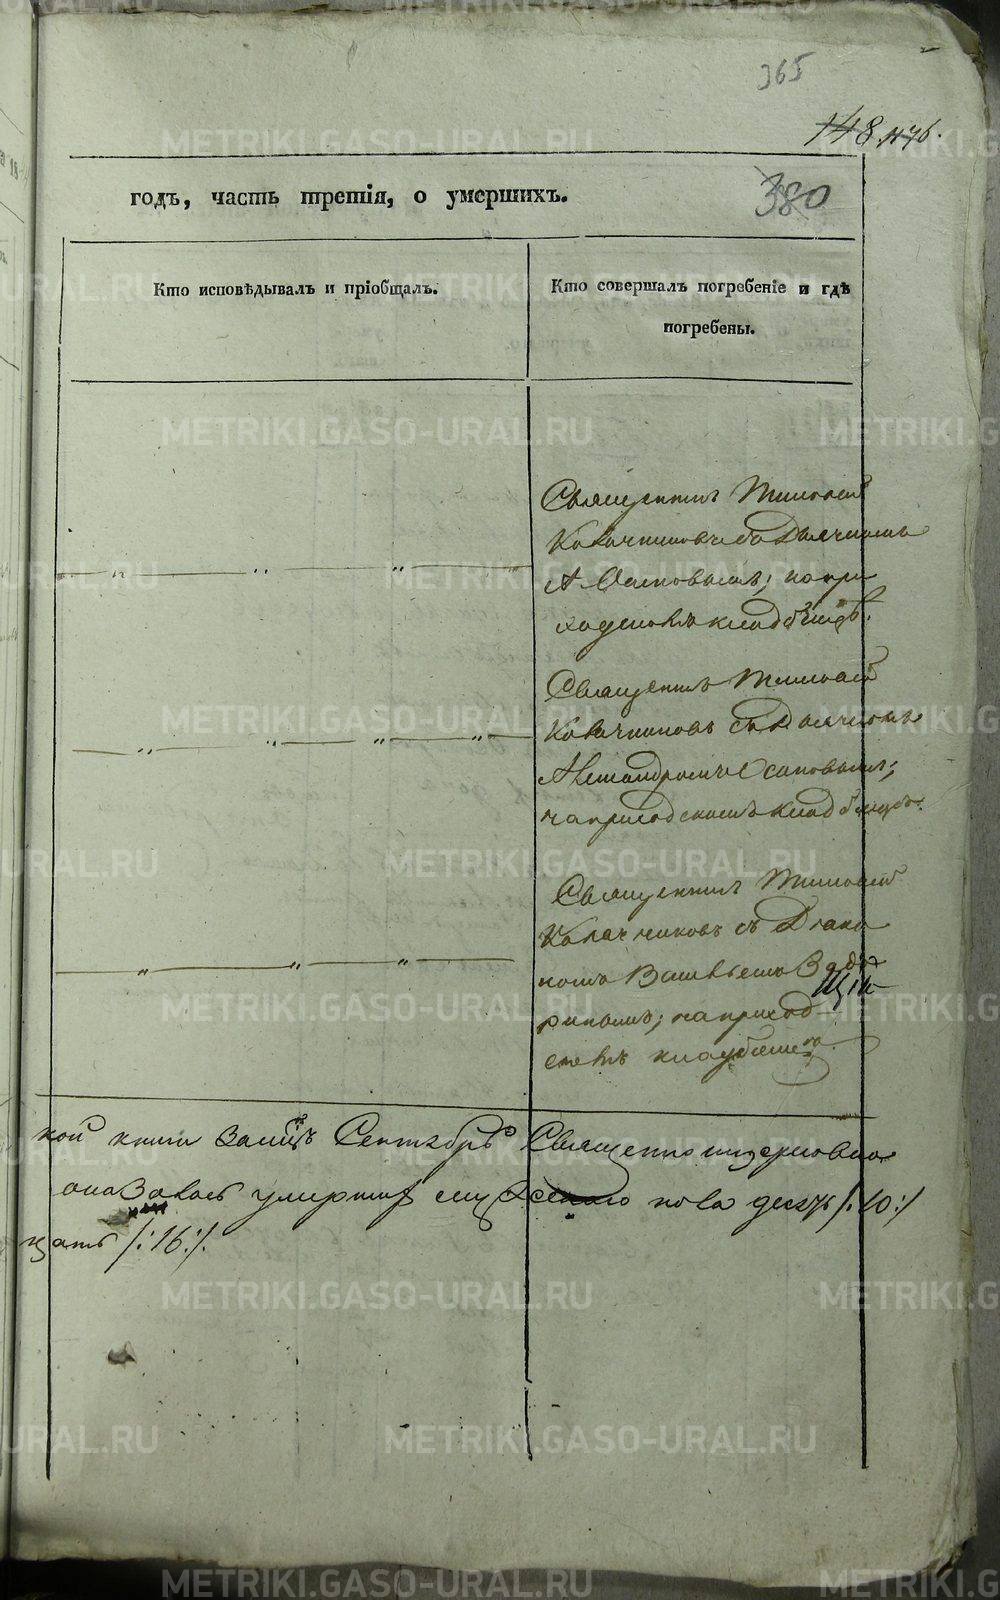 365
148 476.
годъ, часть третія, о умершихъ.
380
Кто исповѣдывалъ и пріобщалъ.
Кто совершалъ погребеніе и гдѣ
погребены.
Священникъ Тимоѳей
Калачниковъ съ Дьячкомъ
А Осиповымъ; на при
ходскомъ кладбищѣ.
Священникъ Тимоѳей
Калачниковъ съ Дьячкомъ
Александромъ Осиповымъ;
на приходскомъ кладбищѣ.
Священникъ Тимоѳей
Калачниковъ съ Діако
номъ Васильемъ
на приход
скомъ кладбище
кой книги за мцъ Сентябрь Священно
оказалось умершихъ муж пола десять /:10:/
цать /:16:/.
METRIKI.GASO-URAL.RU